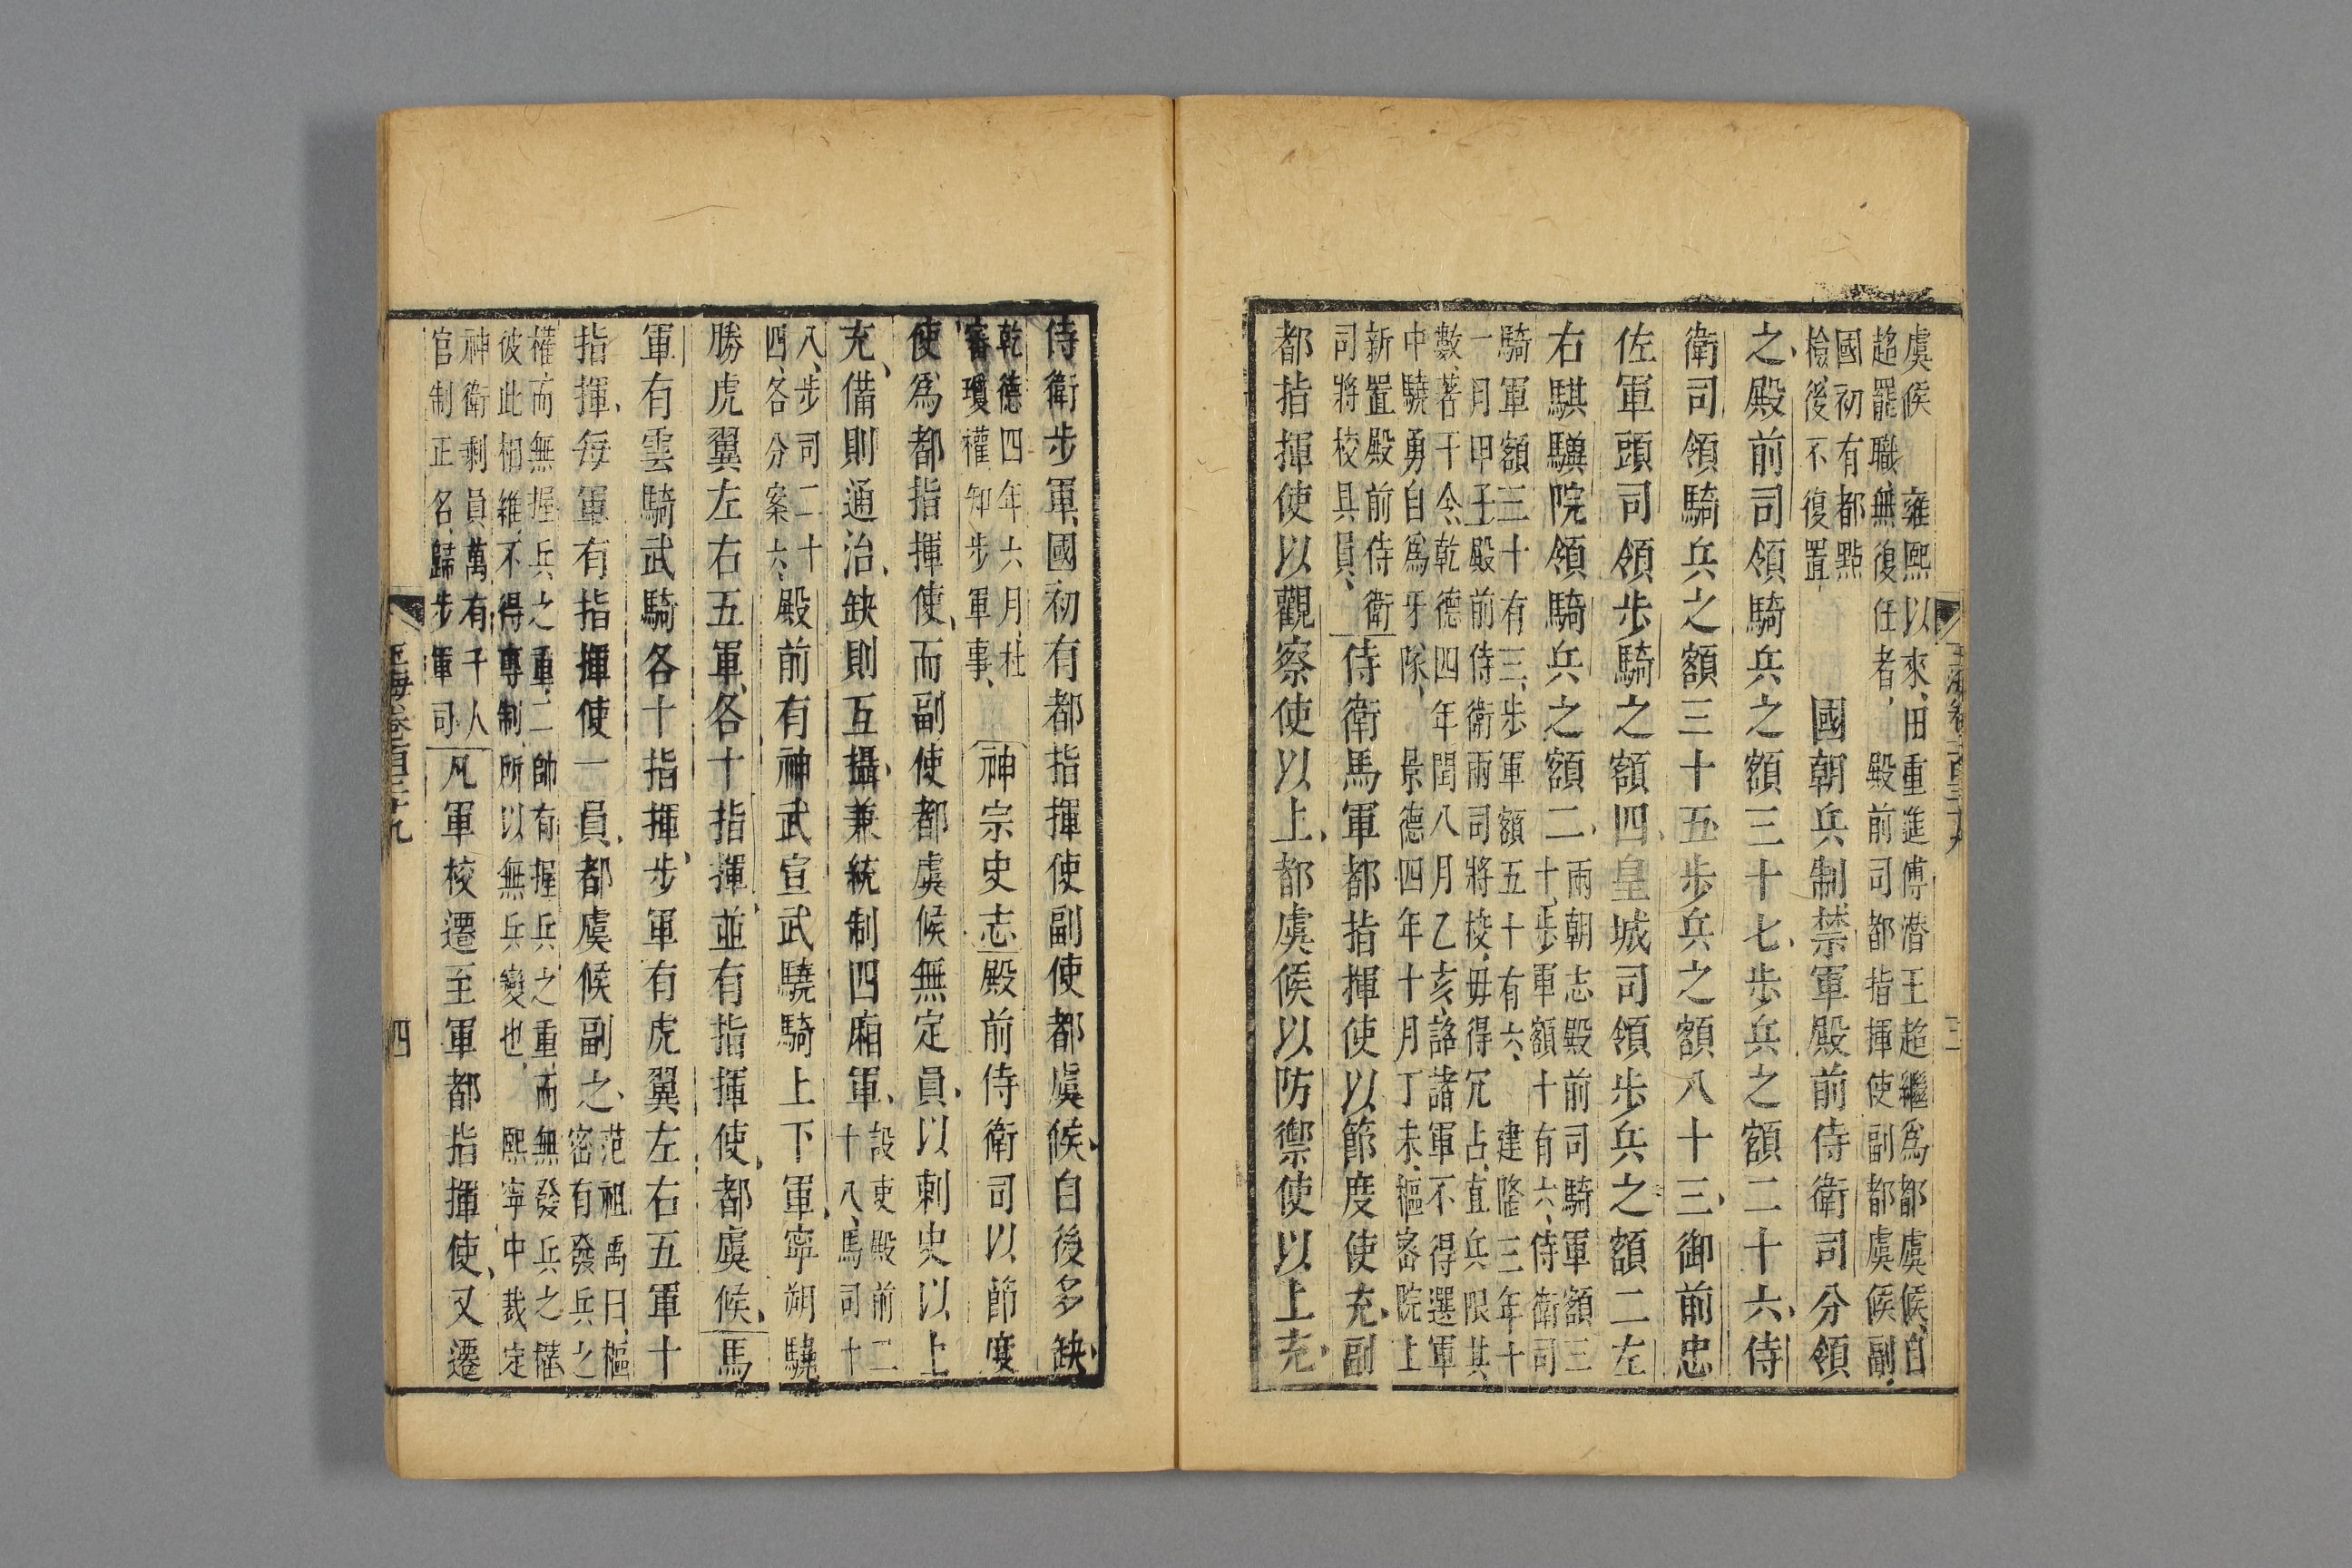 虞候　雍熙以來田重進傅潛王超繼爲都虞候自
超罷職無復任者　殿前司都指揮使副都虞候副
國初有都點
檢後不復置
國朝兵制禁軍殿前侍衛司分領
之殿前司領騎兵之額三十七步兵之額二十六侍
衛司領騎兵之額三十五步兵之額八十三御前忠
佐軍頭司領步騎之額四皇城司領步兵之額二左
右騏驥院領騎兵之額二
兩朝志殿前司騎軍額三
十步軍額十有六侍衛司
騎軍額三十有三步軍額五十有六　建隆三年十
一月甲子殿前侍衛兩司將校毋得冗占直兵限其
數著于令乾德四年閏八月乙亥詔諸軍不得選軍
中驍勇自爲牙隊　景德四年十月丁未樞密院上
新置殿前侍衛
司將校具員
侍衛馬軍都指揮使以節度使充副
都指揮使以觀察使以上都虞候以防禦使以上充
玉海卷一百三十九
三
侍衛步軍國初有都指揮使副使都虞候自後多缺
乾德四年六月杜
審瓊權知步軍事
神宗史志殿前侍衛司以節度
使爲都指揮使而副使都虞候無定員以刺史以上
充備則通治缺則互攝兼統制四廂軍
設吏殿前二
十八馬司十
八步司二十
四各分案六
殿前有神武宣武驍騎上下軍寧朔驍
勝虎翼左右五軍各十指揮並有指揮使都虞候馬
軍有雲騎武騎各十指揮步軍有虎翼左右五軍十
指揮每軍有指揮使一員都虞候副之
范祖禹曰樞
密有發兵之
權而無握兵之重二帥有握兵之重而無發兵之權
彼此相維不得專制所以無兵變也　熙寧中裁定
神衛剩員萬有千人
官制正名歸步軍司
凡軍校遷至軍都指揮使又遷
玉海卷一百三十九
四